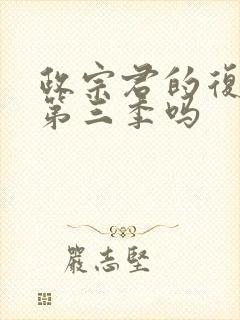 政宗君的復
第三季吗
嚴志堅